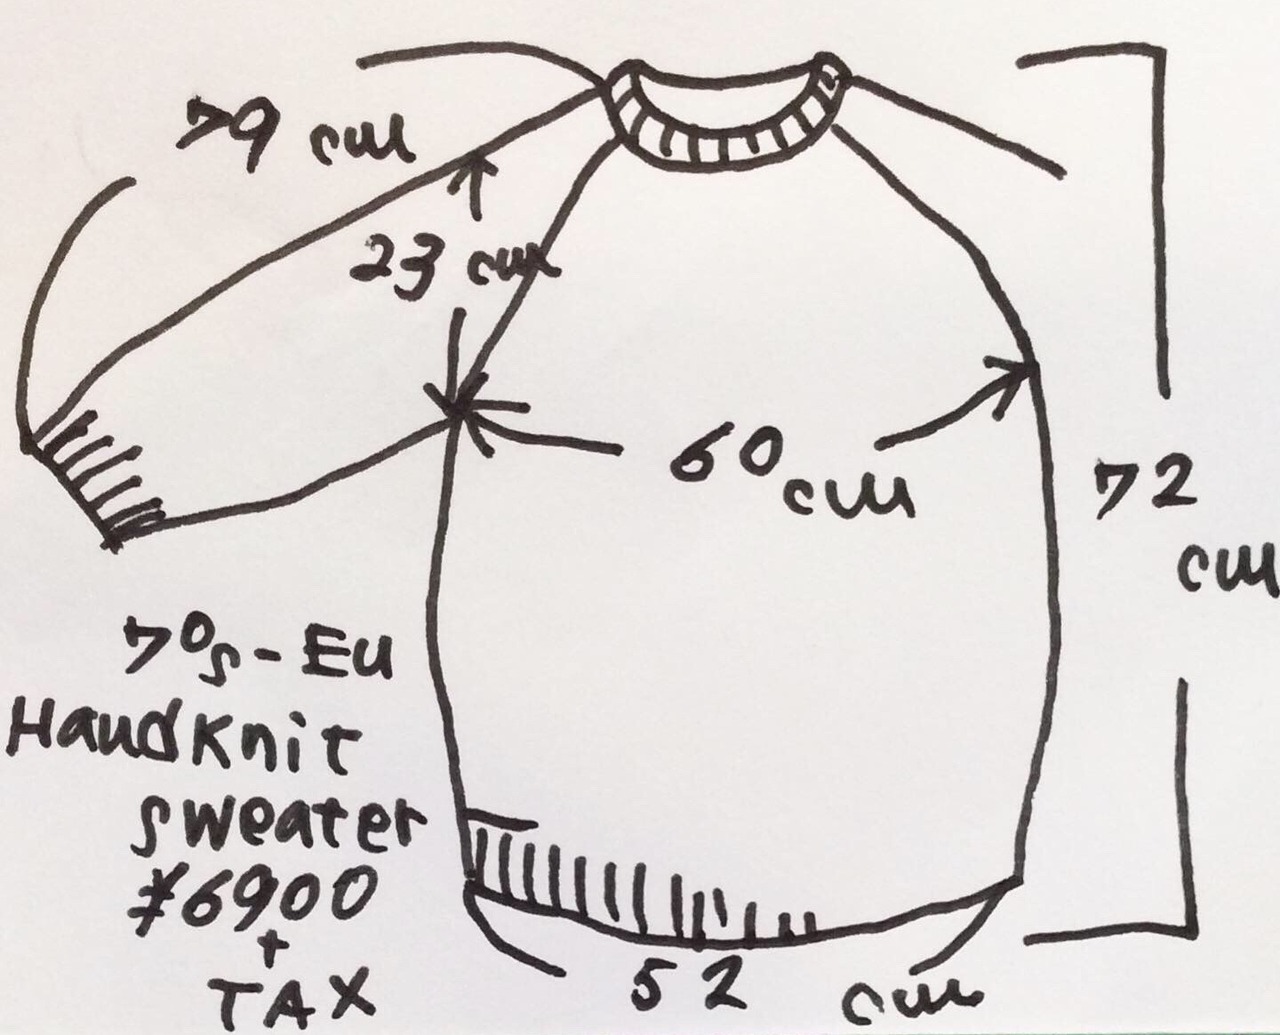 79 cm
23 cm
60 cm
72
cm
70s-Eu
Hand Knit
sweater
¥6900
+
TAX
52 cm